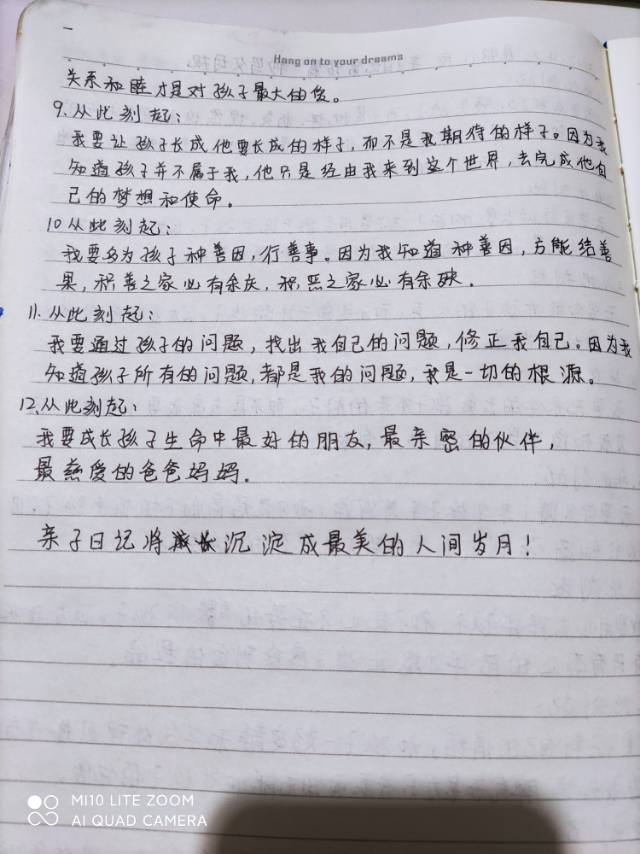 Hang on to your dreams
关系和睦才是对孩子最大的爱。
9.从此刻起:
我要让孩子长成他要长成的样子,而不是我期待的样子。因为我
知道孩子并不属于我,他只是经由我来到这个世界,去完成他自
己的梦想和使命。
10从此刻起:
我要多为孩子种善因,行善事。因为我知道种善因,方能结善
果,积善之家必有余庆,积恶之家必有余殃.
11.从此刻起:
我要通过孩子的问题,找出我自己的问题,修正我自己。因为我
知道孩子所有的问题,都是我的问题,我是一切的根源。
12.从此刻起:
我要成长孩子生命中最好的朋友,最亲密的伙伴,
最慈爱的爸爸妈妈.
亲子日记将沉淀成最美的人间岁月!
MI10 LITE ZOOM
AI QUAD CAMERA